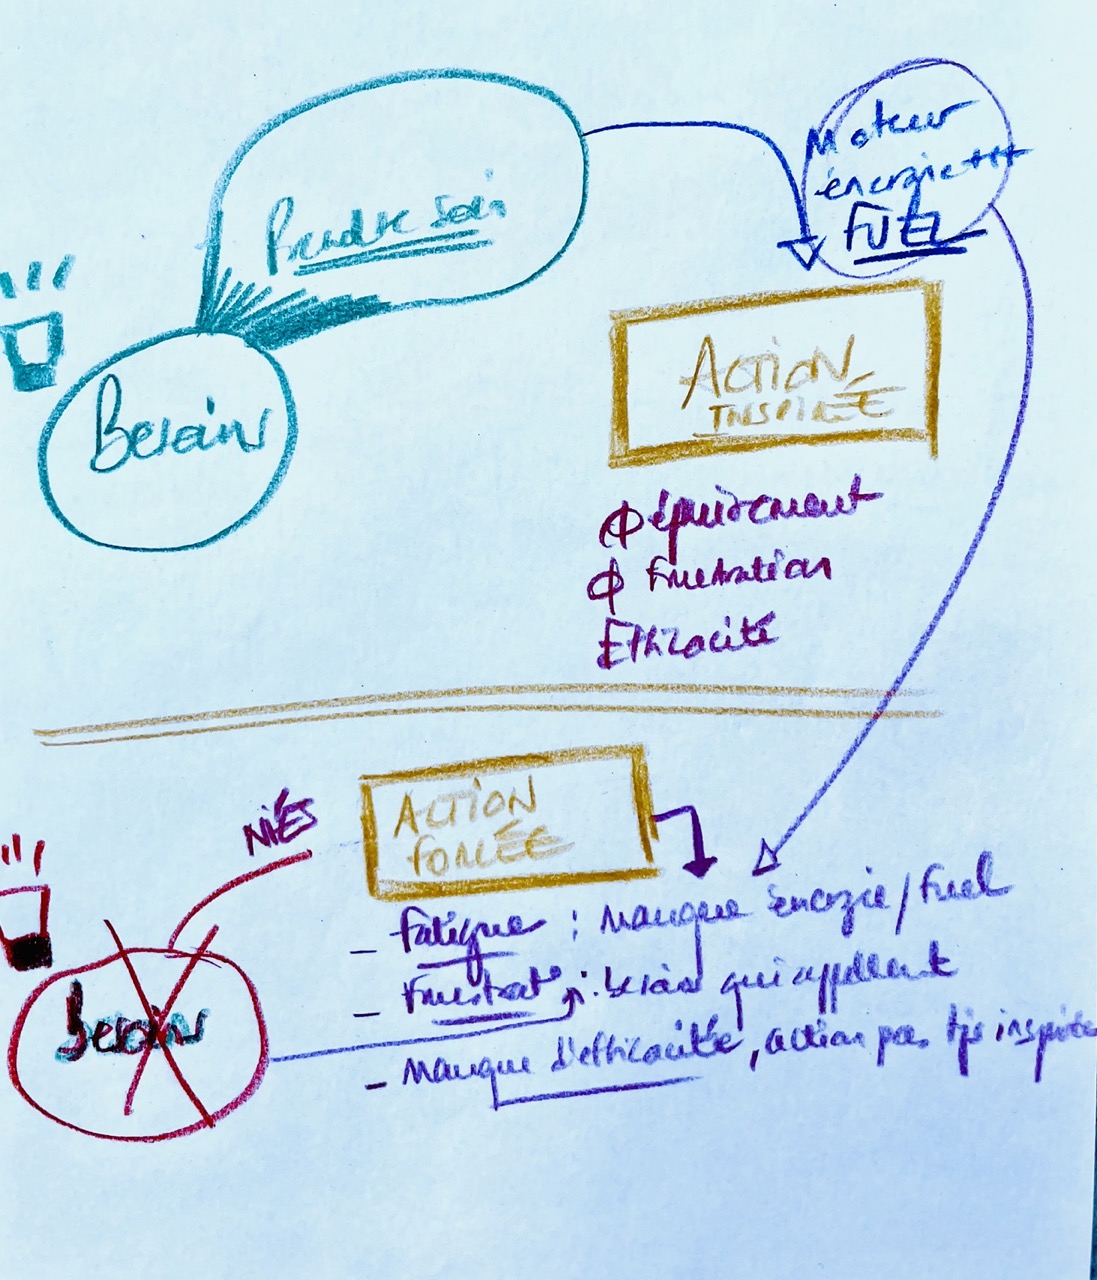 Prendre soin
Moteur
énergie +++
FUEL
Besoins
ACTION
INSPIRÉE
∅ épuisement
∅ frustration
Efficacité
NIÉS
ACTION
FORCÉE
- Fatigue : manque énergie/fuel
- Frustrat° : besoins qui appellent
- Manque d'efficacité, action pas tjs inspirée
Besoins